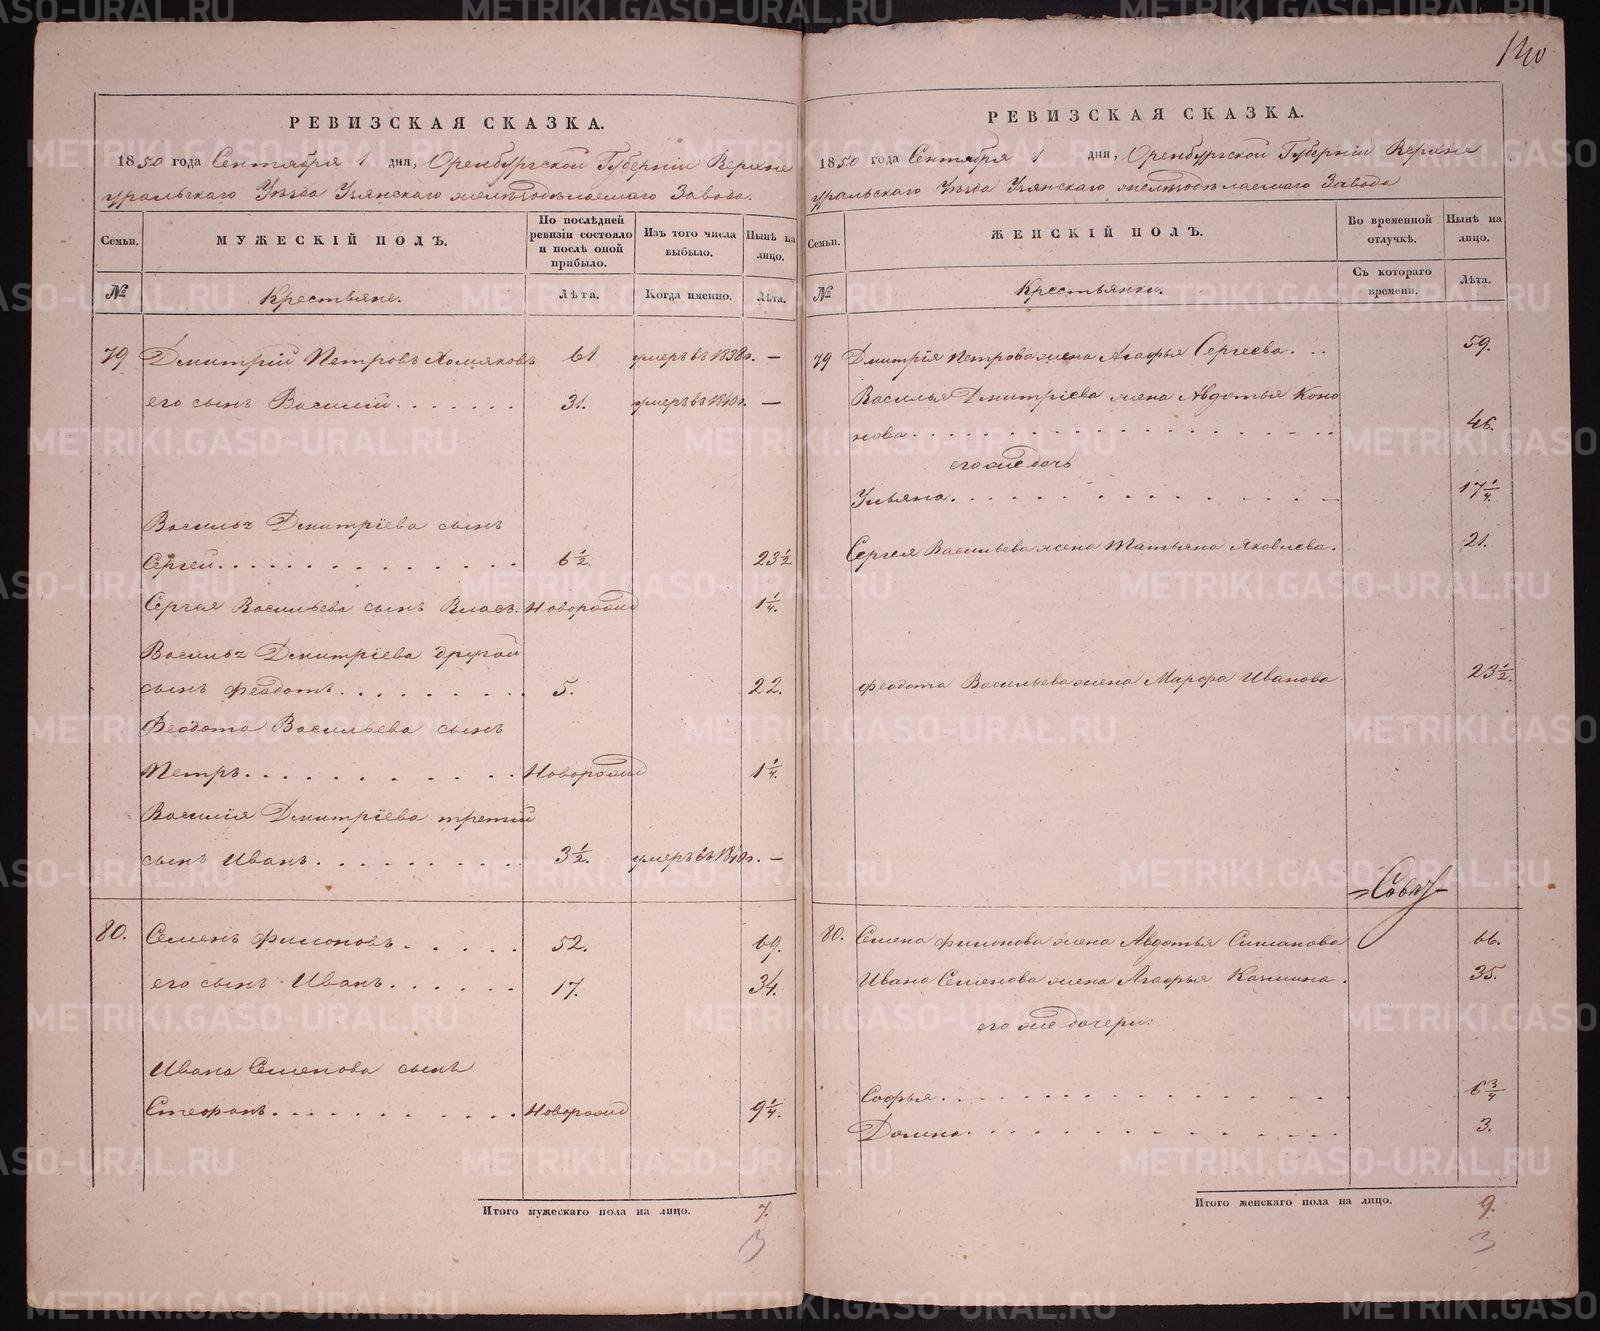 140
РЕВИЗСКАЯ СКАЗКА.
1850 года Сентября 1 дня, Оренбургской Губерніи Верхне
уральскаго Уѣзда Узянскаго желѣзодѣлаемаго Завода.
Семьи.
МУЖЕСКІЙ ПОЛЪ.
По послѣдней ревизіи состояло и послѣ оной прибыло.
Изъ того числа выбыло.
Нынѣ на лицо.
№
Крестьяне.
Лѣта.
Когда именно.
Лѣта.
79 Дмитрій Петровъ Хомяковъ 61 умеръ въ 1838г. —
его сынъ Василій. 31. умеръ въ 1840г. —
Василья Дмитріева сынъ
Сергей. 6½. 23½
Сергея Васильева сынъ Власъ. Новорожд 1¼.
Василья Дмитріева другой
сынъ Феодотъ. 5. 22.
Феодота Васильева сынъ
Петръ. Новорожд 1¼.
Василія Дмитріева третій
сынъ Иванъ. 3½. умеръ въ 1840г. —
80. Семенъ Филоновъ. 52. 69.
его сынъ Иванъ. 17. 34.
Ивана Семенова сынъ
Стефанъ. Новорожд 9¼.
Итого мужескаго пола на лицо. 7.
3
РЕВИЗСКАЯ СКАЗКА.
1850 года Сентября 1 дня, Оренбургской Губерніи Верхне
уральскаго Уѣзда Узянскаго желѣзодѣлаемаго Завода
Семьи.
ЖЕНСКІЙ ПОЛЪ.
Во временной отлучкѣ.
Нынѣ на лицо.
№
Крестьянки.
Съ котораго времени.
Лѣта.
79 Дмитрія Петрова жена Агафья Сергеева. 59.
Василья Дмитріева жена Авдотья Коно
нова. 46.
его же дочь
Ульяна. 17¼.
Сергея Васильева жена Татьяна Яковлева. 21.
Феодота Васильева жена Марфа Иванова 23½.
80. Семена Филонова жена Авдотья 66.
Ивана Семенова жена Агафья 35.
его же дочери:
Софья. 6¾
Домна. 3.
Итого женскаго пола на лицо. 9.
3
METRIKI.GASO-URAL.RU